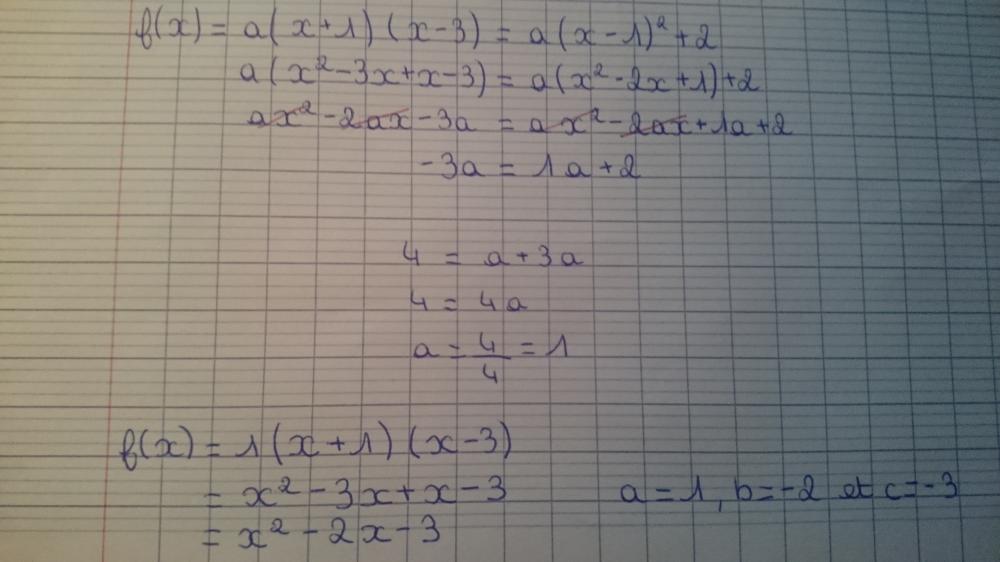 f(x) = a(x+1)(x-3) = a(x-1)²+2
a(x²-3x+x-3) = a(x²-2x+1)+2
ax²-2ax-3a = ax²-2ax+1a+2
-3a = 1a+2
4 = a+3a
4 = 4a
a = 4/4 = 1
f(x) = 1(x+1)(x-3)
= x²-3x+x-3 a=1, b=-2 et c=-3
= x²-2x-3